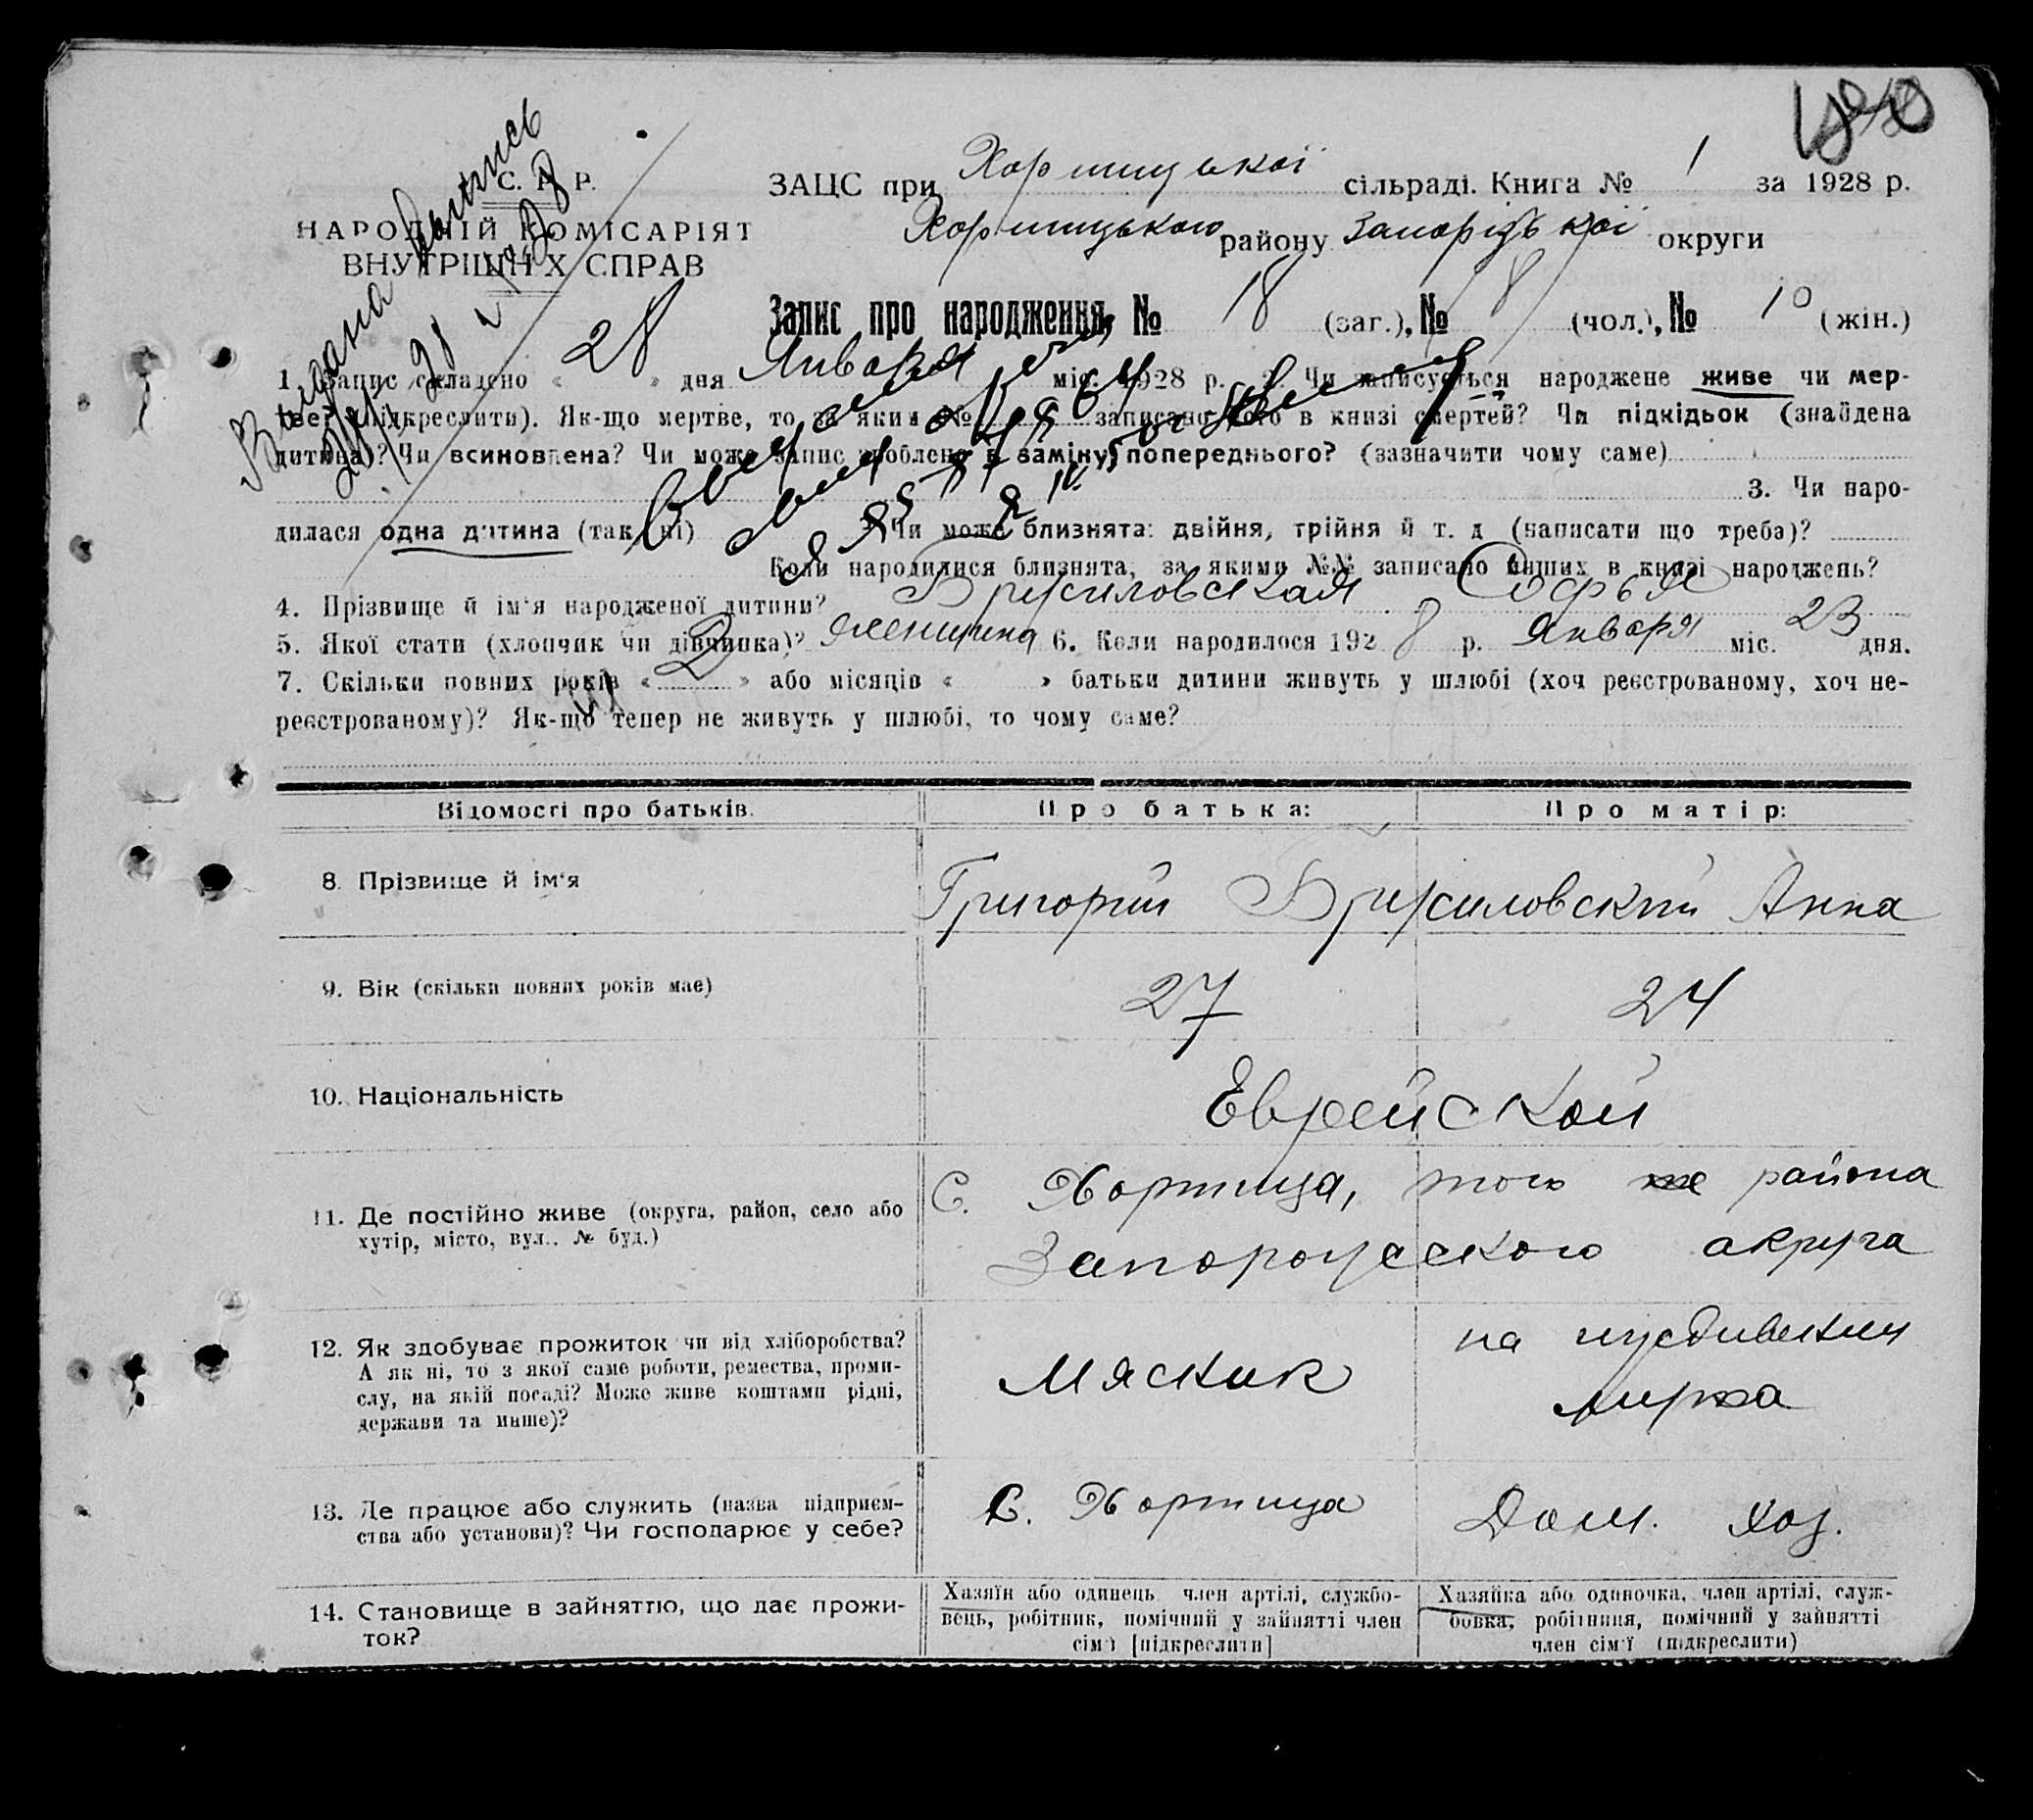 С. Р. Р.
НАРОДНІЙ КОМІСАРІЯТ
ВНУТРІШНІХ СПРАВ
Выдана выпись
ЗАЦС при Хортицької сільраді. Книга № 1 за 1928 р.
Хортицького району Запорізької округи
Запис про народження, № 18 (заг.), № 8 (чол.), № 10 (жін.)
1. Запис складено « 28 » дня Января міс. 1928 р. 2. Чи записується народжене живе чи мер-
тве? (підкреслити). Як-що мертве, то за яким № записано його в книзі смертей? Чи підкідьок (знайдена
дитина)? Чи всиновлена? Чи може запис зроблено в заміну попереднього? (зазначити чому саме)
3. Чи наро-
дилася одна дитина (так, ні) Чи може близнята: двійня, трійня й т. д (написати що треба)?
Коли народилися близнята, за якими №№ записано инших в книзі народжень?
4. Прізвище й ім'я народженої дитини? Брусиловская Софья
5. Якої стати (хлопчик чи дівчинка)? женщина 6. Коли народилося 1928 р. Января міс. 23 дня.
7. Скільки повних років « 2 » або місяців « » батьки дитини живуть у шлюбі (хоч реєстрованому, хоч не-
реєстрованому)? Як-що тепер не живуть у шлюбі, то чому саме?
Відомості про батьків. Про батька: Про матір:
8. Прізвище й ім'я Григорий Брусиловский Анна
9. Вік (скільки повних років має) 27 24
10. Національність Еврейской
11. Де постійно живе (округа, район, село або
хутір, місто, вул., № буд.)
С. Хортица, того же района
Запорожского округа
12. Як здобуває прожиток чи від хліборобства?
А як ні, то з якої саме роботи, ремества, проми-
слу, на якій посаді? Може живе коштами рідні,
держави та инше)?
Мясник
на иждивении
мужа
13. Де працює або служить (назва підприєм-
ства або установи)? Чи господарює у себе?
С. Хортица Дом. хоз.
14. Становище в зайняттю, що дає прожи-
ток?
Хазяїн або одинець член артілі, службо-
вець, робітник, помічний у зайнятті член
сім'ї [підкреслити]
Хазяйка або одиночка, член артілі, служ-
бовка, робітниця, помічний у зайнятті
член сім'ї (підкреслити)